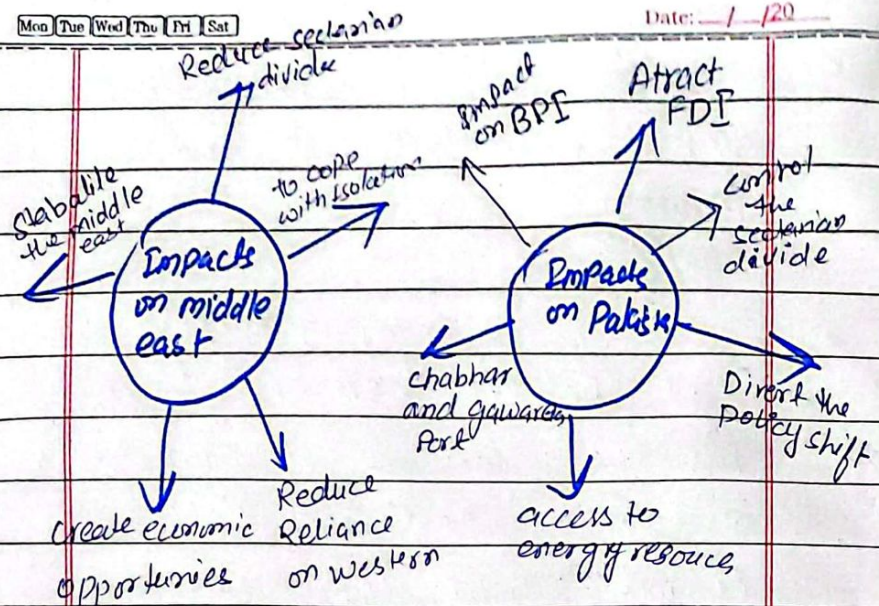 Mon Tue Wed Thu Fri Sat
Date: / /20
Reduce sectarian
divide
to cope
with Isolation
Stabalile
the middle
east
Impacts
on middle
east
Create economic
opportunies
Reduce
Reliance
on western
Impact
on BPI
Atract
FDI
control
the
sectarian
divide
Impacts
on Pakisn
chabhar
and gawarda
Port
Divert the
Policy shift
access to
energy resouces